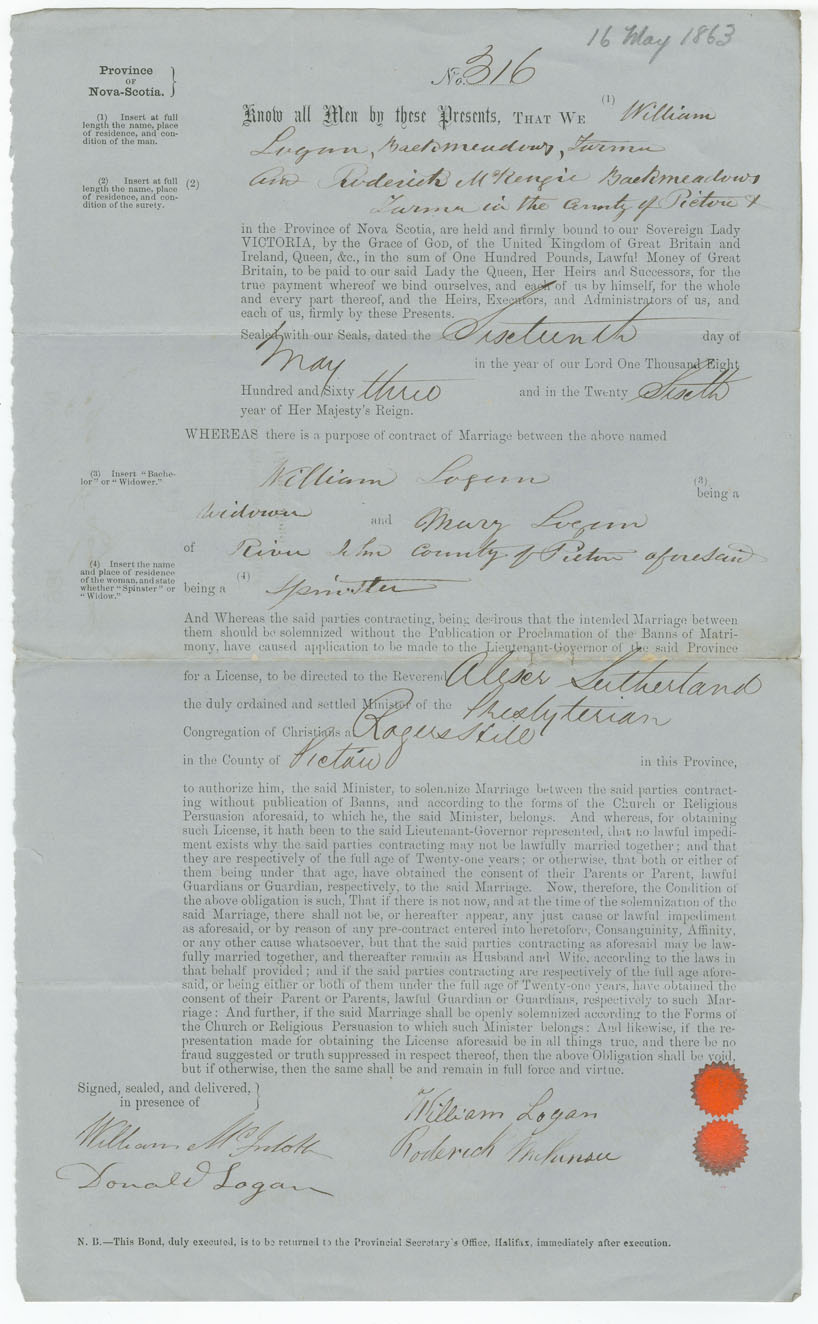 16 May 1863
Province
OF
Nova-Scotia.
No. 316
(1) Insert at full
length the name, place
of residence, and con-
dition of the man.
Know all Men by these Presents, THAT WE (1) William
Logan, Backmeadows, Farmer
(2) Insert at full
length the name, place
of residence, and con-
dition of the surety.
(2) and Roderick McKenzie Backmeadows
Farmer in the County of Pictou &
in the Province of Nova Scotia, are held and firmly bound to our Sovereign Lady
VICTORIA, by the Grace of GOD, of the United Kingdom of Great Britain and
Ireland, Queen, &c., in the sum of One Hundred Pounds, Lawful Money of Great
Britain, to be paid to our said Lady the Queen, Her Heirs and Successors, for the
true payment whereof we bind ourselves, and each of us by himself, for the whole
and every part thereof, and the Heirs, Executors, and Administrators of us, and
each of us, firmly by these Presents.
Sealed with our Seals, dated the Sixteenth day of
May in the year of our Lord One Thousand Eight
Hundred and Sixty three and in the Twenty Sixth
year of Her Majesty's Reign.
WHEREAS there is a purpose of contract of Marriage between the above named
(3) Insert "Bache-
lor" or "Widower."
William Logan (3) being a
widower and Mary Logan
of River John County of Pictou aforesaid
(4) Insert the name
and place of residence
of the woman, and state
whether "Spinster" or
"Widow."
being a (4) Spinster
And Whereas the said parties contracting, being desirous that the intended Marriage between
them should be solemnized without the Publication or Proclamation of the Banns of Matri-
mony, have caused application to be made to the Lieutenant-Governor of the said Province
for a License, to be directed to the Reverend Alexr Sutherland
the duly ordained and settled Minister of the Presbyterian
Congregation of Christians at Rogers Hill
in the County of Pictou in this Province,
to authorize him, the said Minister, to solemnize Marriage between the said parties contract-
ing without publication of Banns, and according to the forms of the Church or Religious
Persuasion aforesaid, to which he, the said Minister, belongs. And whereas, for obtaining
such License, it hath been to the said Lieutenant-Governor represented, that no lawful impedi-
ment exists why the said parties contracting may not be lawfully married together; and that
they are respectively of the full age of Twenty-one years; or otherwise, that both or either of
them being under that age, have obtained the consent of their Parents or Parent, lawful
Guardians or Guardian, respectively, to the said Marriage. Now, therefore, the Condition of
the above obligation is such, That if there is not now, and at the time of the solemnization of the
said Marriage, there shall not be, or hereafter appear, any just cause or lawful impediment
as aforesaid, or by reason of any pre-contract entered into heretofore, Consanguinity, Affinity,
or any other cause whatsoever, but that the said parties contracting as aforesaid may be law-
fully married together, and thereafter remain as Husband and Wife, according to the laws in
that behalf provided; and if the said parties contracting are respectively of the full age afore-
said, or being either or both of them under the full age of Twenty-one years, have obtained the
consent of their Parent or Parents, lawful Guardian or Guardians, respectively to such Mar-
riage: And further, if the said Marriage shall be openly solemnized according to the Forms of
the Church or Religious Persuasion to which such Minister belongs: And likewise, if the re-
presentation made for obtaining the License aforesaid be in all things true, and there be no
fraud suggested or truth suppressed in respect thereof, then the above Obligation shall be void,
but if otherwise, then the same shall be and remain in full force and virtue.
Signed, sealed, and delivered,
in presence of
William Logan
William McIntosh
Roderick McKenzie
Donald Logan
N. B.—This Bond, duly executed, is to be returned to the Provincial Secretary's Office, Halifax, immediately after execution.